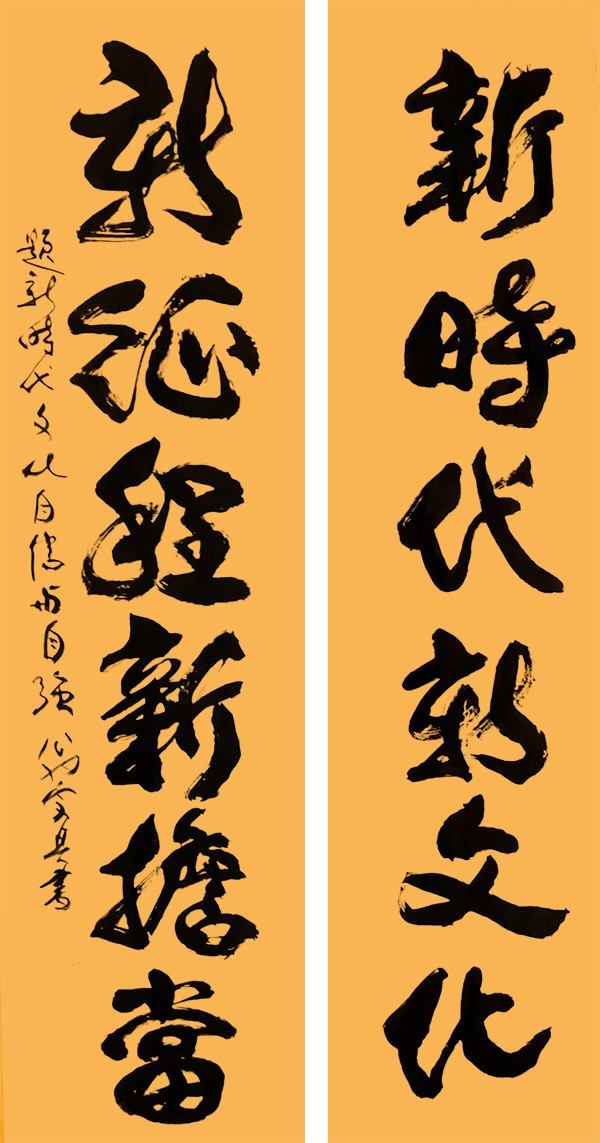 新時代新文化
新征程新擔當
題新時代文化自信与自強